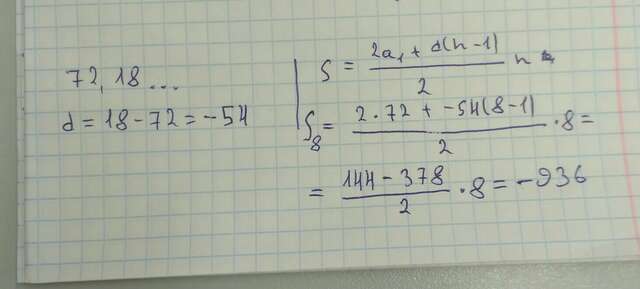 72, 18 ...
d = 18 - 72 = -54
S = (2a₁ + d(n-1))/2 n
S₈ = (2 · 72 + -54(8-1))/2 · 8 =
= (144 - 378)/2 · 8 = -936